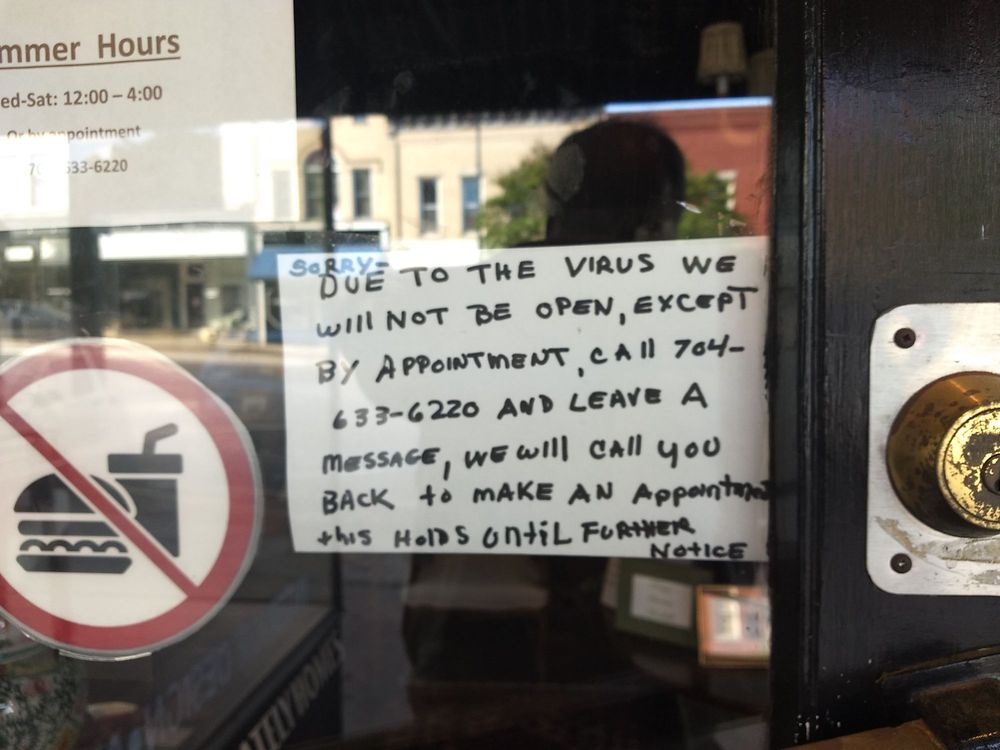 mmer Hours
ed-Sat: 12:00 – 4:00
Or by appointment
633-6220
SORRY-
DUE TO THE VIRUS WE
will NOT BE OPEN, EXCEPT
BY APPOINTMENT, CAll 704-
633-6220 AND LEAVE A
MESSAGE, WE will CAll you
BACK to MAKE AN Appointment
this HolDS UntiL FURTHER
NOTICE